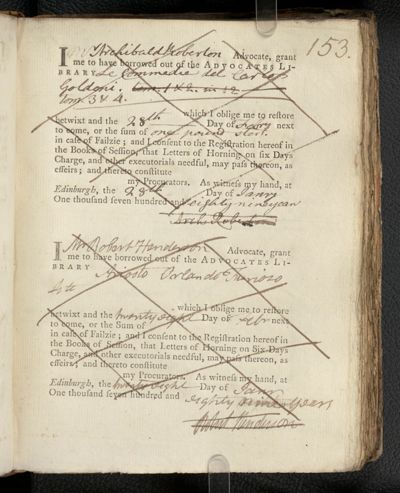 153.
I Mr Archibald Roberton Advocate, grant
me to have borrowed out of the ADVOCATES LI-
BRARY Le Commedie del Carlo
Goldoni. tom. 1 & 2. in 12
tom 3 & 4.
which I oblige me to restore
betwixt and the 28th Day of next
to come, or the sum of one pound sterl.
in case of Failzie; and I consent to the Registration hereof in
the Books of Session, that Letters of Horning on six Days
Charge, and other executorials needful, may pass thereon, as
effeirs; and thereto constitute
my Procurators. As witness my hand, at
Edinburgh, the 28th Day of Janry
One thousand seven hundred and eighty nine year
Arch Roberton
I Mr Robert Henderson Advocate, grant
me to have borrowed out of the ADVOCATES LI-
BRARY Ariosto Orlando Furioso
4to
which I oblige me to restore
betwixt and the twenty eight Day of Febr next
to come, or the Sum of
in case of Failzie; and I consent to the Registration hereof in
the Books of Session, that Letters of Horning on Six Days
Charge, and other executorials needful, may pass thereon, as
effeirs; and thereto constitute
my Procurators. As witness my hand, at
Edinburgh, the twenty eight Day of Janry
One thousand seven hundred and eighty nine years
Robert Henderson